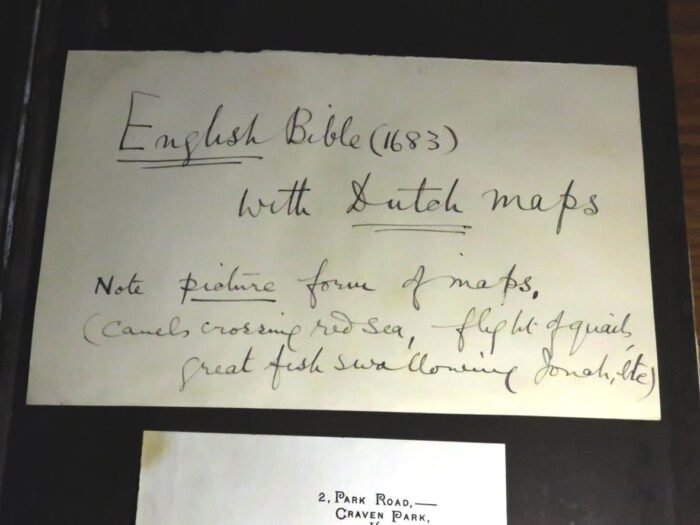 English Bible (1683)
with Dutch maps
Note picture form of maps.
(Camels crossing red sea, flight of quails,
great fish swallowing Jonah, etc)
2, PARK ROAD,—
CRAVEN PARK,